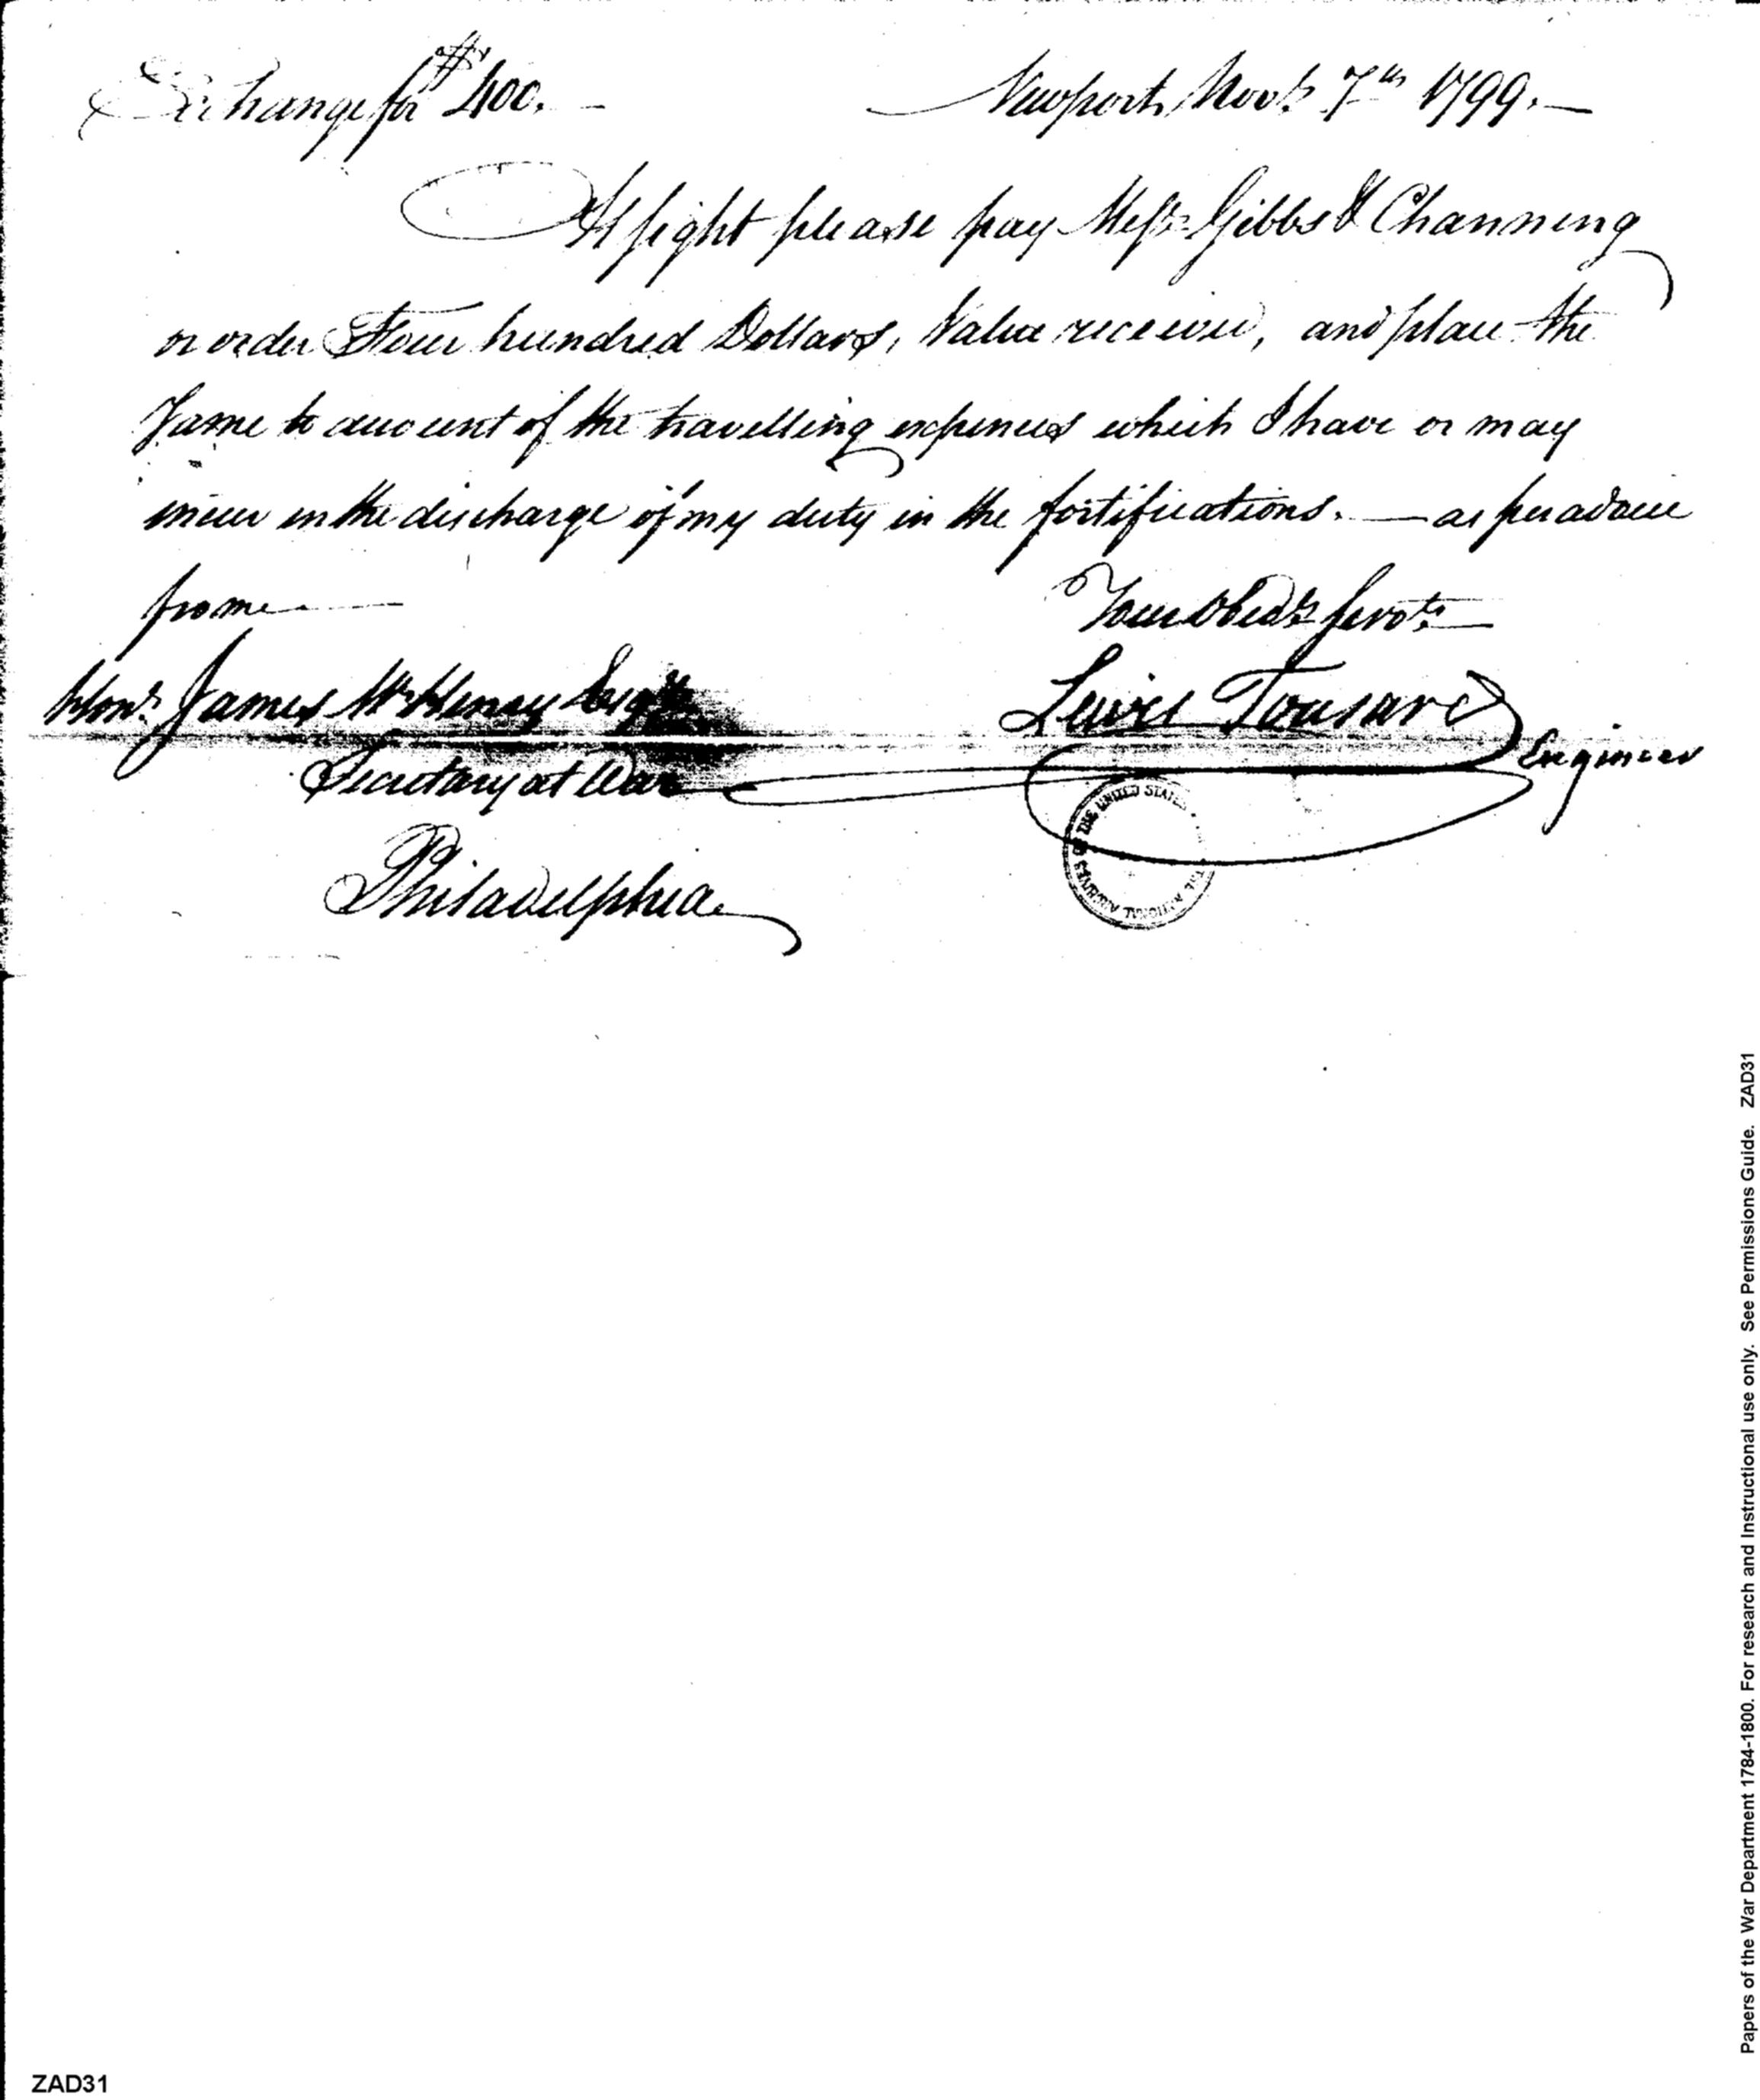 Exchange for $400.
Newport, Novr. 7th 1799.
At sight please pay Messrs. Gibbs & Channing
or order Four hundred Dollars, Value received, and place the
Same to account of the travelling expences which I have or may
incur in the discharge of my duty in the fortifications. — as per advice
from
Your Obedt. Servt.
Honl. James McHenry Esqr.
Lewis Tousard
Engineer
Secretary at War
Philadelphia
THE NATIONAL ARCHIVES OF THE UNITED STATES
Papers of the War Department 1784-1800. For research and Instructional use only. See Permissions Guide. ZAD31
ZAD31